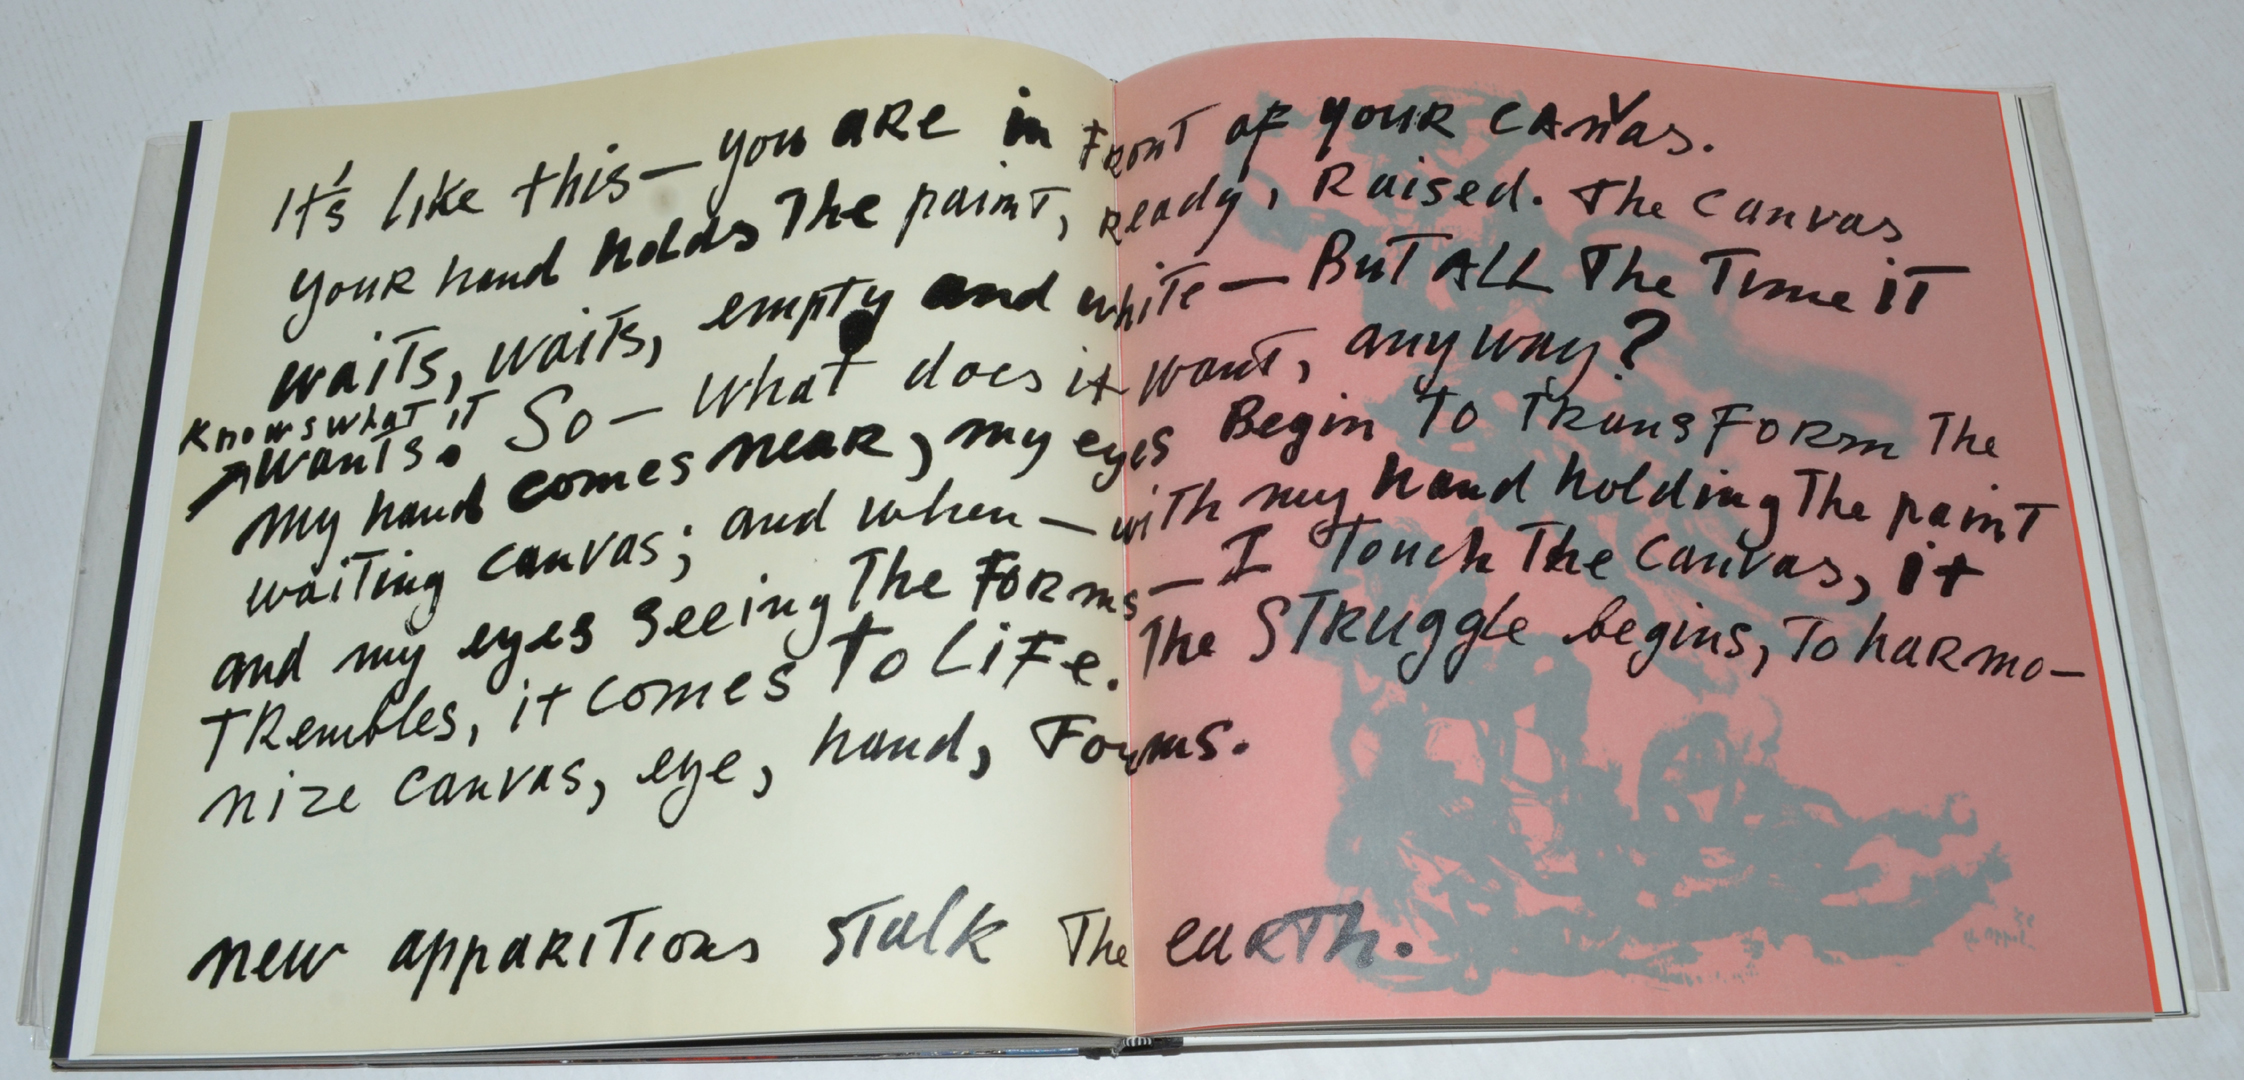 It's like this — you are in front of your canvas.
Your hand holds the paint, ready, raised. The canvas
waits, waits, empty and white — But ALL The Time iT
knows what iT
wants. So — what does it want, anyway?
My hand comes near, my eyes Begin To Transform The
waiting canvas; and when — with my hand holding The paint
and my eyes seeing The Forms — I Touch The canvas, it
Trembles, it comes To LiFe. The STRuggle begins, To harmo-
nize canvas, eye, hand, Forms.
new apparitions stalk The earth.